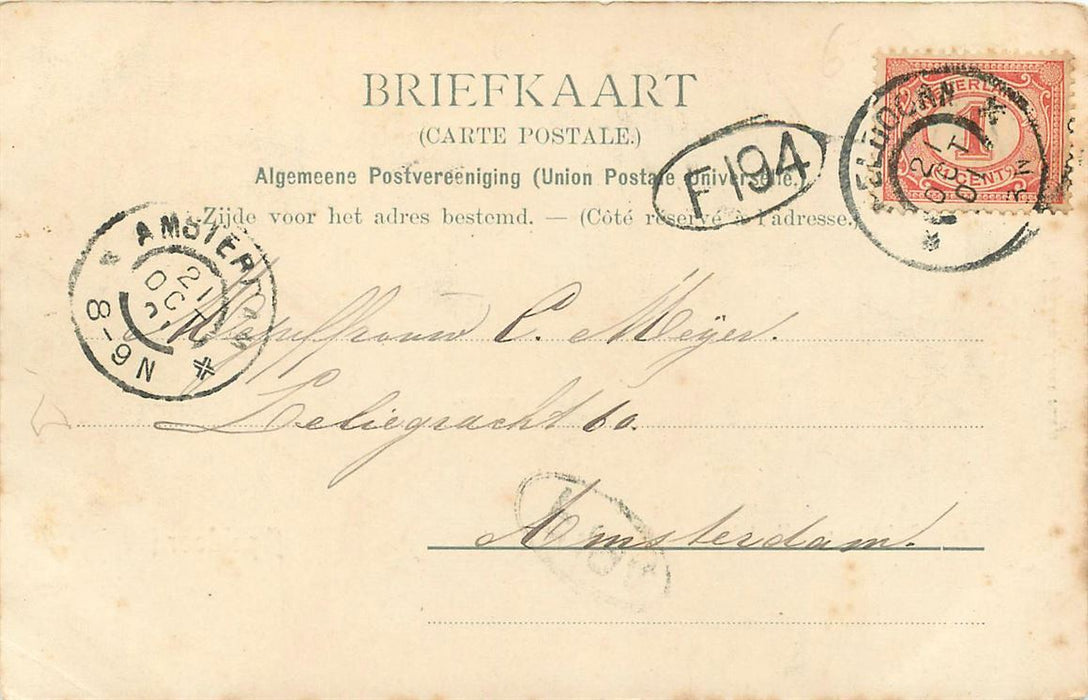 BRIEFKAART
(CARTE POSTALE.)
Algemeene Postvereeniging (Union Postale Universelle.)
Zijde voor het adres bestemd. — (Côté réservé à l'adresse.)
F 194
1
CENT
AMSTERDAM
21
OCT
8-9N
Mejuffrouw C. Meijer.
Leliegracht 60.
Amsterdam.